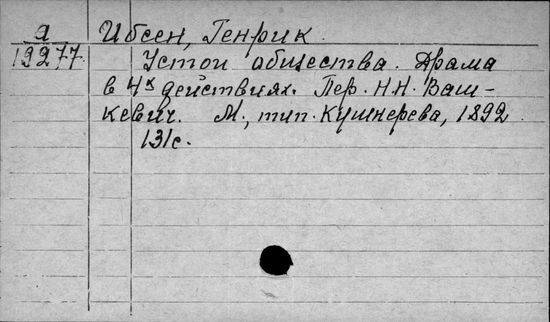 Я Ибсен, Генрик.
19277. Устои общества. Драма
в 4х действиях. Пер. Н.Н. Ваш-
кевич. М., тип. Кушнерева, 1892.
131с.